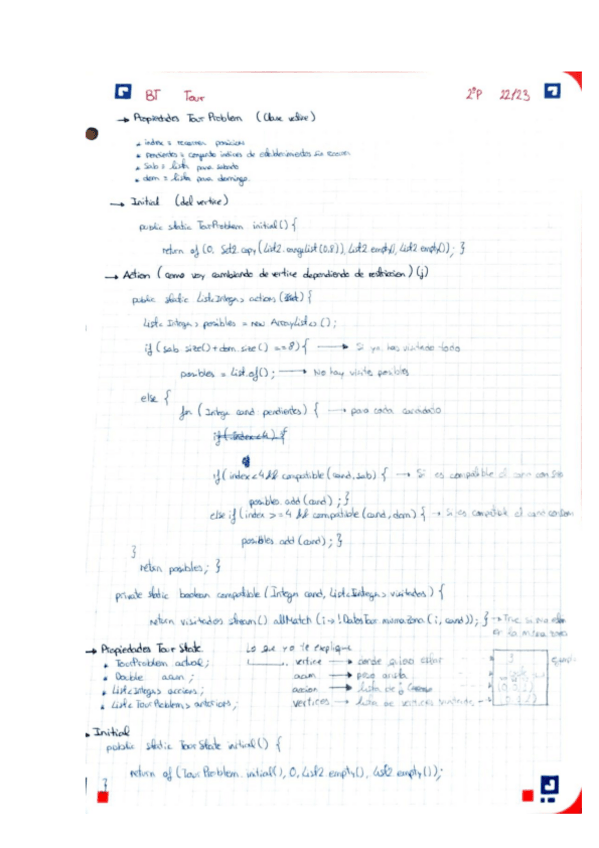 BT Tour 2ºP 22/23
→ Propiedades Tour Problem (Clase vertice)
• index =
• pendientes = conjunto indices de establecimientos sin
• sab = lista para sabado
• dom = lista para domingo.
→ Initial (del vertice)
public static TourProblem initial() {
return of (0, Set2.copy(List2.rangeList(0,8)), List2.empty(), List2.empty()); }
→ Action (como voy cambiando de vertice dependiendo de restriccion) (j)
public static List<Integer> actions () {
List<Integer> posibles = new ArrayList<>();
if (sab.size()+dom.size() ==8) { → Si ya has visitado todo
posibles = List.of(); → No hay visite posibles
else {
for (Integer cand pendientes) { → para cada candidato
if (index<4) {
if (index<4 && compatible (cand, sab) { → Si es compatible el cand con sab
posibles.add (cand); }
else if (index >=4 && compatible (cand, dom) { → Si es compatible el cand con dom
posibles.add (cand); }
}
return posibles; }
private static boolean compatible (Integer cand, List<Integer> visitados) {
return visitados.stream().allMatch (i → !DatosTour.mismaZona (i, cand)); } → True si no estan
en la misma zona
→ Propiedades Tour State Lo que yo te explique
• TourProblem actual; vertice → donde quiero estar
• Double acum; acum → peso arista
• List<Integer> acciones; accion → lista de
• List<TourProblem> anteriores; vertices → lista de vertices
• Initial
public static TourState initial() {
return of (TourProblem.initial(), 0, List2.empty(), List2.empty());
}